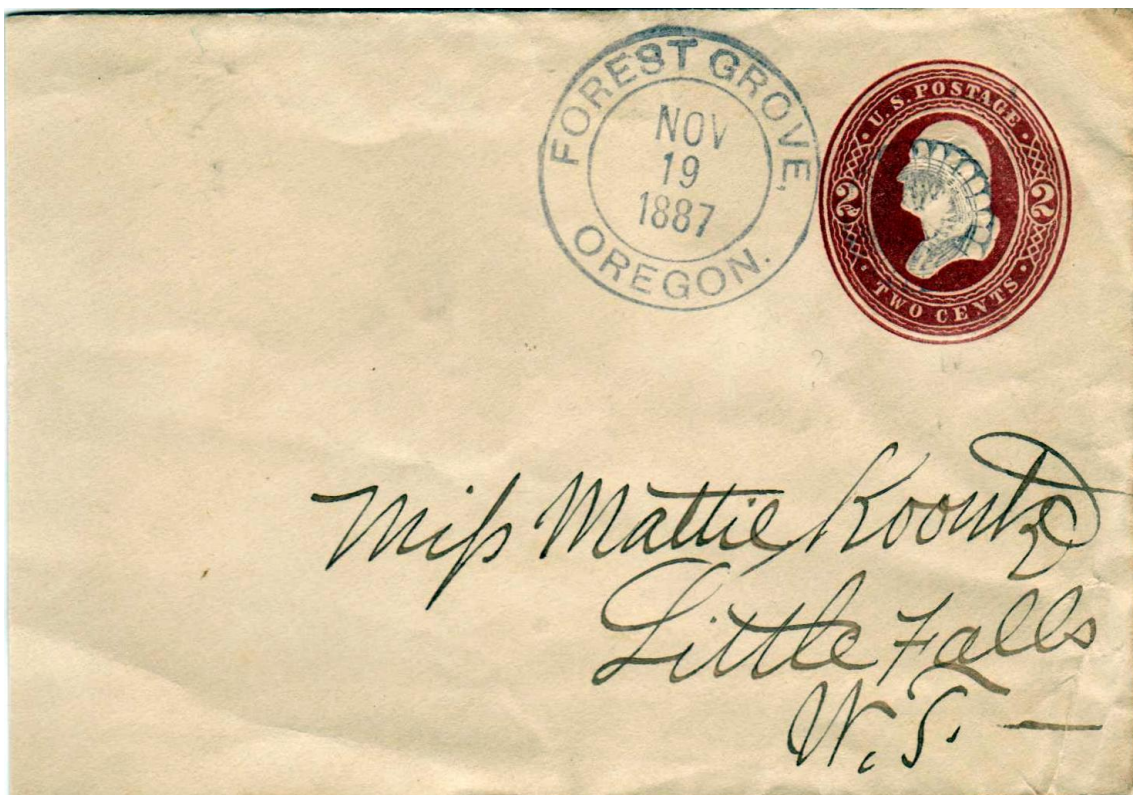 FOREST GROVE,
NOV
19
1887
OREGON.
U.S. POSTAGE
2 2
TWO CENTS
Miss Mattie Koontz
Little Falls
W. T. —